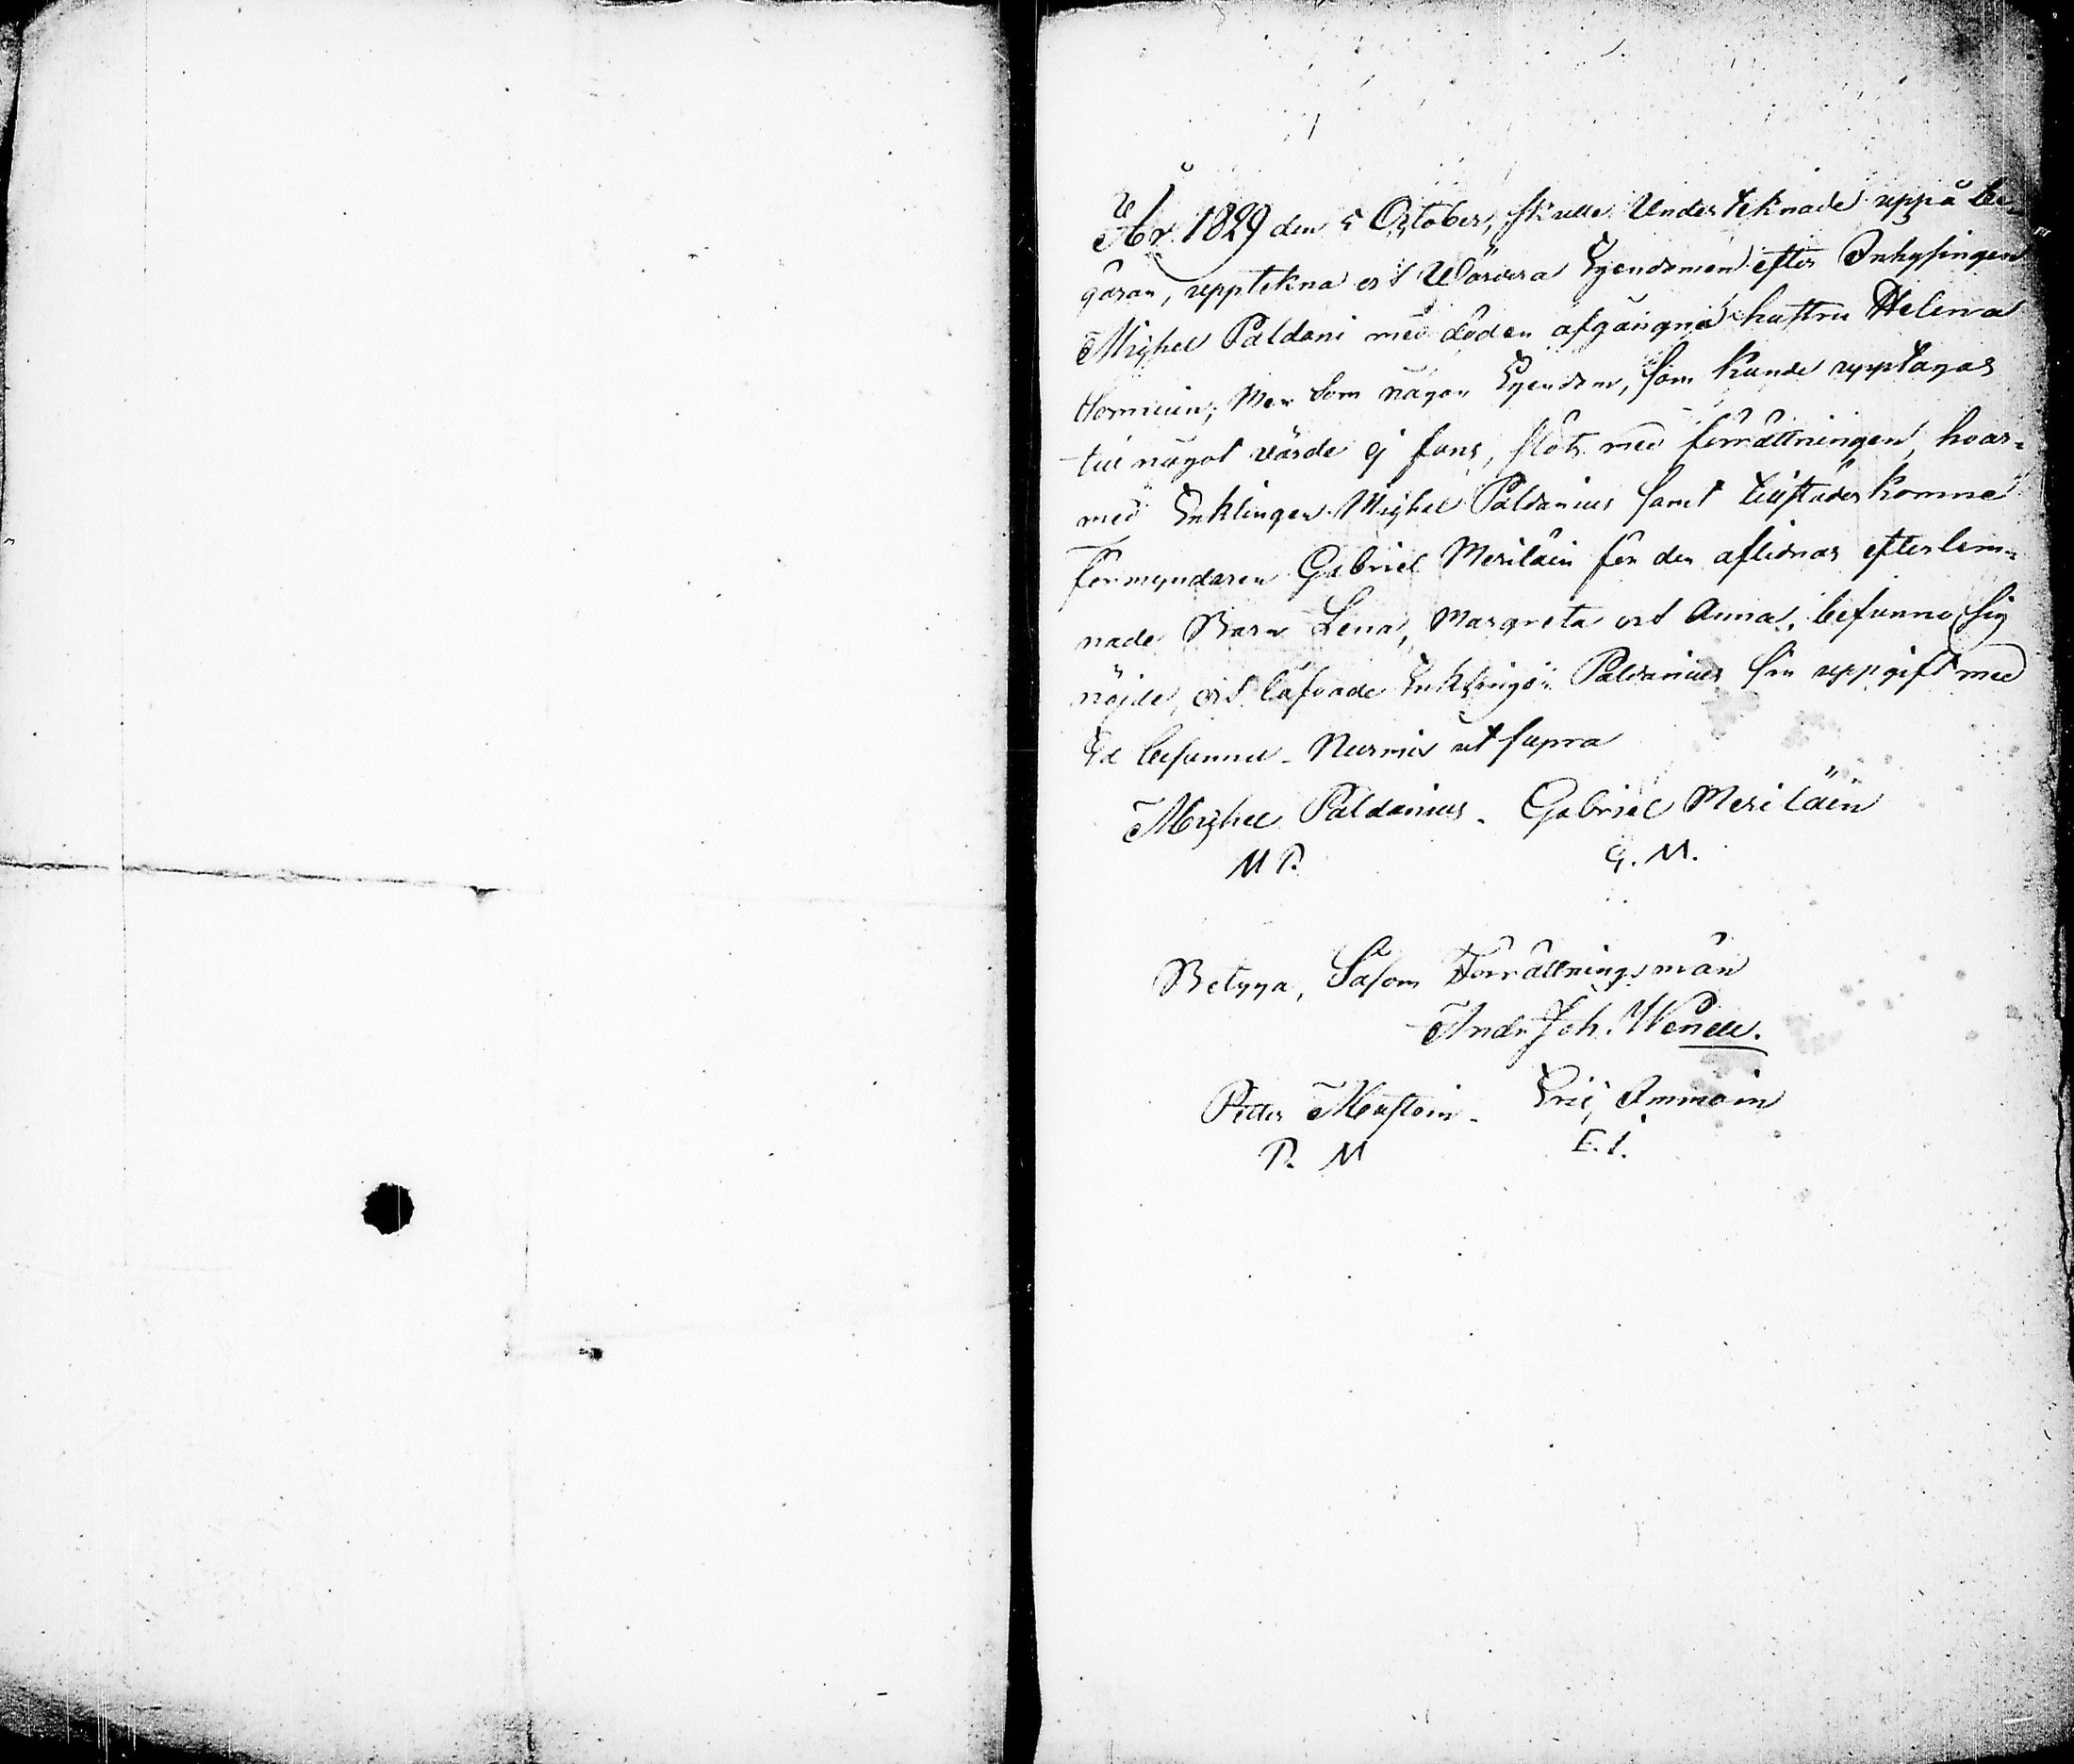 År 1829 den 5 October, skulle Underteknade uppå be-
gäran, upptekna och Wärdera Egendomen efter Inhysingen
Michel Paldani med döden afgångna hustru Helena
Torniuin; Men som någon Egendom, som kunde upptagas
till något värde ej fans, slöts med förrättningen, hvar=
med Enklingen Michel Paldanius samt tillstädes komne
förmyndaren Gabriel Meriläin för den aflidnas efterlem=
nade Barn Lena, Margreta och Anna, befunno sig
nöjde, och lofvade Enklingen Paldanius sin uppgift med
Ed Nurmis ut supra
Michel Paldanius. Gabriel Meriläin
M P. G. M.
Betyga, Såsom Förrättningsmän
And. Joh. Wenell.
Petter Mustoin. Eric Immoin
P. M E. I.